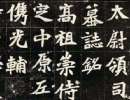 太尉領司
墓誌銘
高祖崇侍
中原左
儁光輔